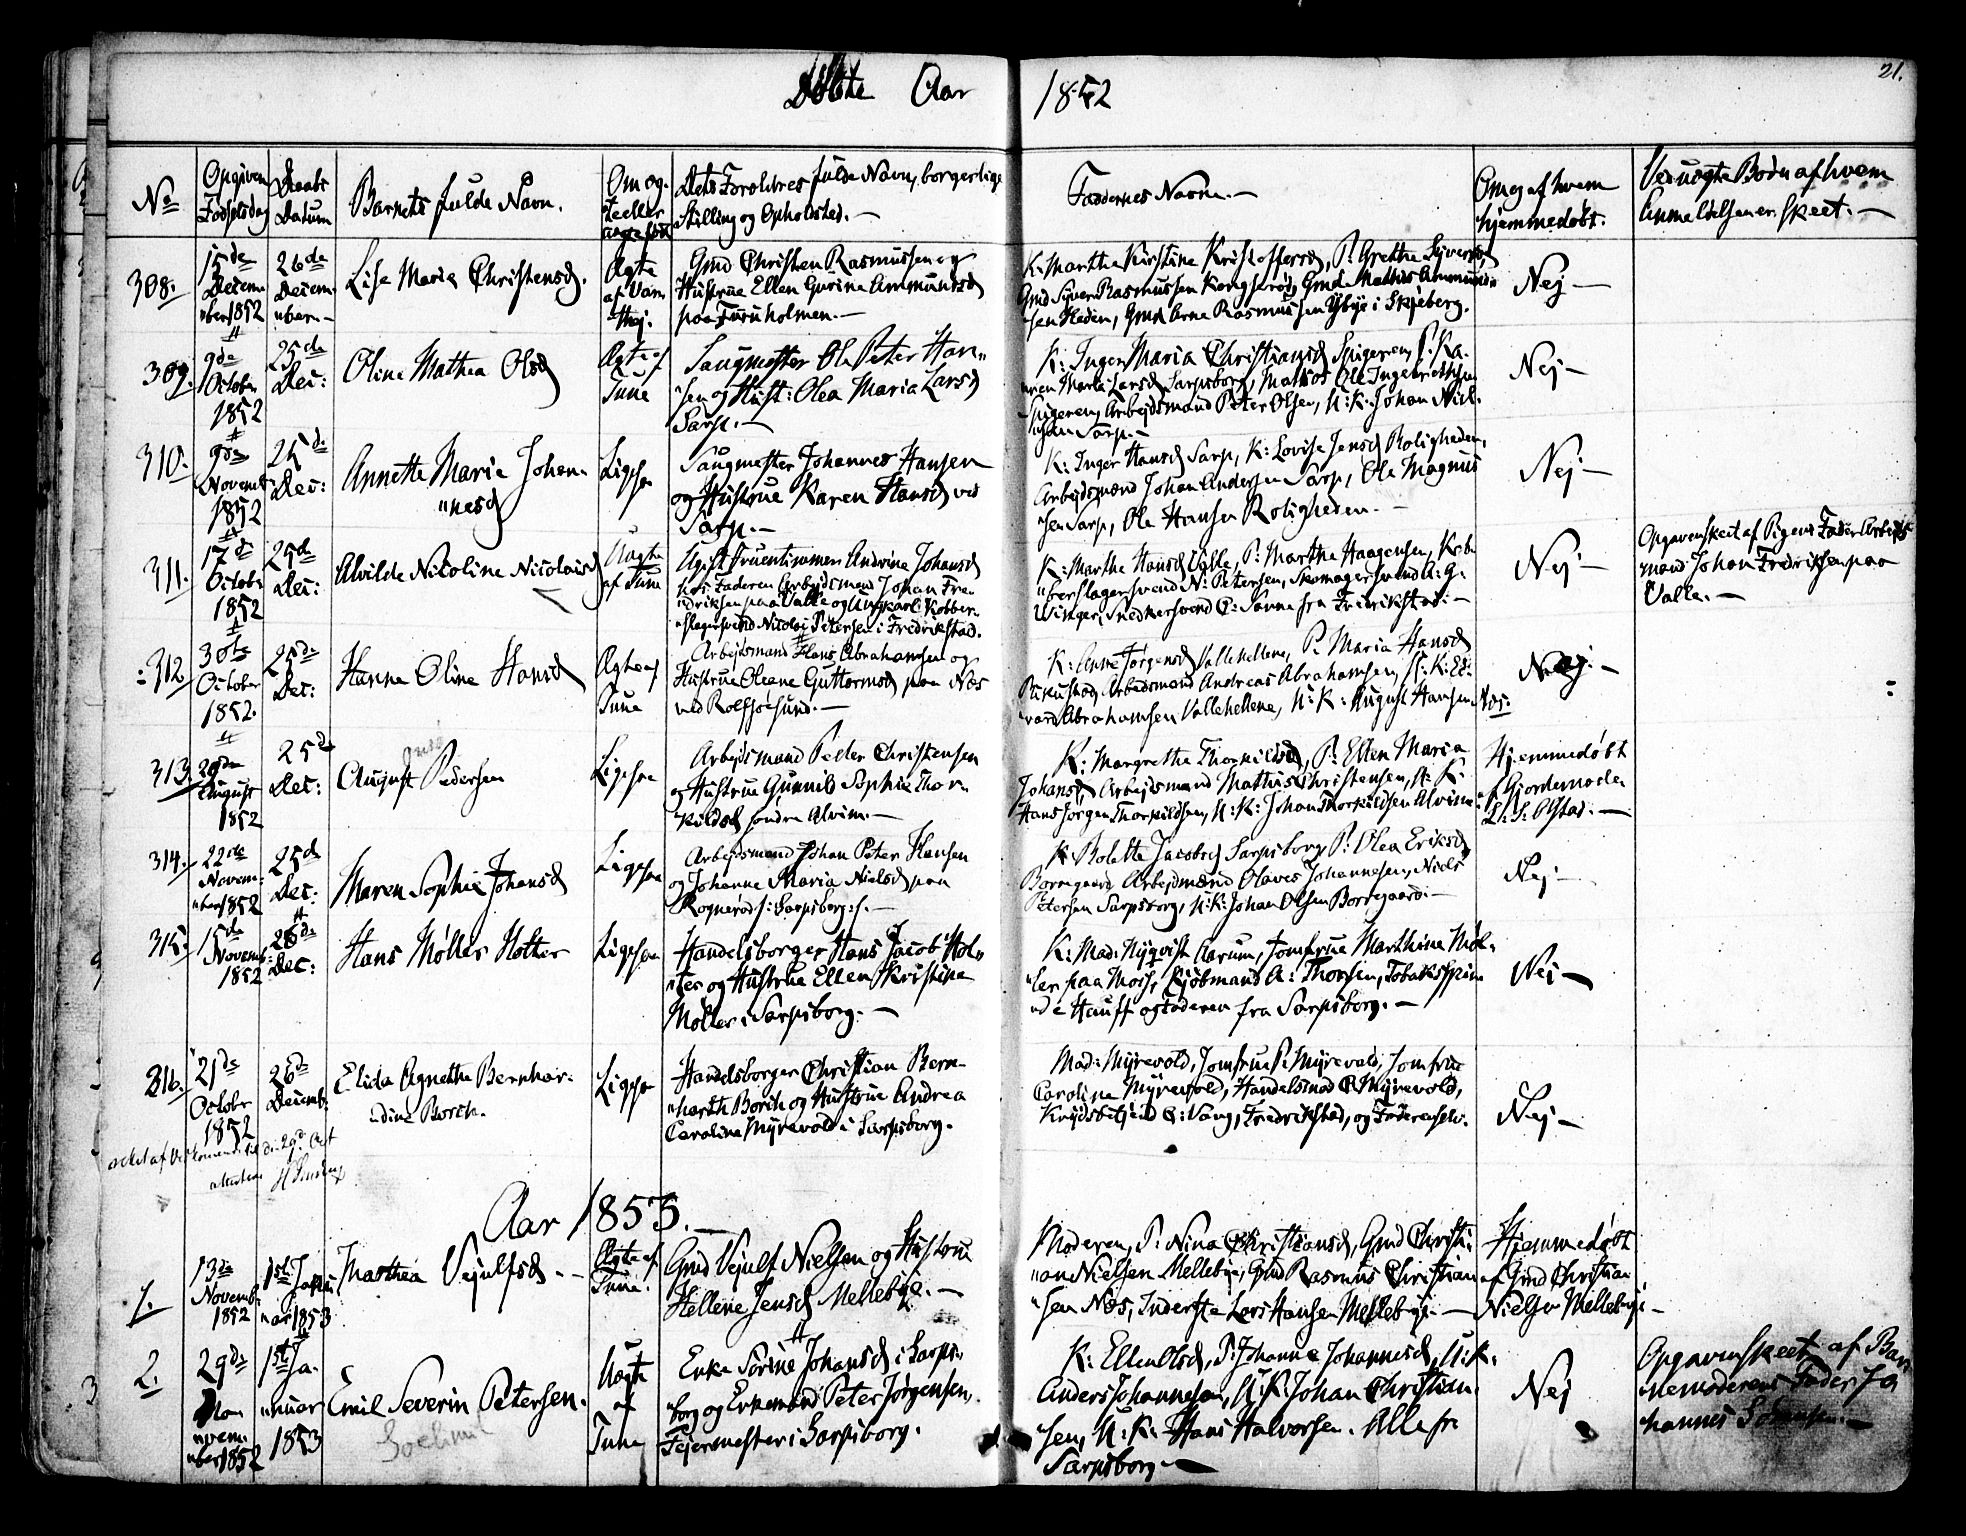 Døbte Aar 1852
21.
No
Opgiven Fødselsdag
Daabs Datum
Barnets fulde Navn.
Om ægte eller uægte født
Dets Forældres fulde Navn, borgerlige
Stilling og Opholdsted. —
Faddernes Navne. —
Om og af hvem
hjemmedøbt.
Ved uægte Børn af hvem
Anmeldelsen er skeet. —
308.
15de
Decem-
"ber 1852
26de
Decem-
"ber. —
Lise Maria Christensd.
Ægte
af
Gmd Christen Rasmussen og
Hustrue Ellen Gurine Ammundsd
paa Furuholmen. —
K: Marthe Kirstine Kristoffersd, P: Grethe Syversd,
Gmd Syver Rasmussen Kongsrød, Gmd Mathis Ammund"
"sen Heden, Gmd Arne Rasmussen Ysbye i Skjeberg.
Nej —
309.
9de
October
1852
25de
Dec:
Oline Mathea Olsd
Ægte af
Tune
Saugmester Ole Peter Han"
"sen og Hust: Olea Maria Larsd
Sarp. —
K: Inger Maria Christiansd Spigeren, P: Ka-
"ren Maria Larsd Sarpsborg, Matros Ole Ingebretsen
Spigeren, Arbejdsmand Peter Olsen, U: K: Johan Niel-
"sen Sarp. —
Nej —
310.
9de
Novemb
1852
25de
Dec:
Annette Marie Johan-
"nesd
Ligesaa
Saugmester Johannes Hansen
og Hustrue Karen Hansd ved
Sarp. —
K: Inger Hansd Sarp, K: Lovise Jensd Roligheden,
Arbejdsmænd Johan Andersen Sarp, Ole Magnus
"sen Sarp, Ole Hansen Roligheden. —
Nej —
311.
17de
Octobr
1852
25de
Dec:
Alvilde Nicoline Nicolaisd
Uægte
af Tune
Ugift Fruentimmer Andrine Johansd
hos Faderen Arbejdsmand Johan Fre-
"driksen paa Valle og Ungkarl Kobber-
"slagersvend Nicolai Petersen i Fredrikstad.
K: Marthe Hansd Valle, P: Marthe Haagensen, Kob-
"berslagersvend N: Petersen, Skomagersvend A: G:
Winger, Snedkersvend C: Sanne fra Fredrikstad: —
Nej —
Opgaven skeet af Pigens Fader Arbejds
mand Johan Fredriksen paa
Valle. —
312.
30te
October
1852.
25de
Dec:
Hanna Oline Hansd
Ægte af
Tune
Arbejdsmand Hans Abrahamsen og
Hustrue Oleane Guttormsd paa Næs
ved Rolfsøesund. —
K: Anne Jørgensd Vallehellene, P: Maria Hansd
Arbejdsmand Andreas Abrahamsen, U: K: Ed-
"vard Abrahamsen Vallehellene, U: K: August Hansen Næs.
Nej. —
313.
29de
August
1852
25de
Dec:
August Pedersen
Ligesaa
Arbejdsmand Peder Christensen
og Hustrue Gunnild Sophie Thor-
"kildsd søndre Alvim. —
K: Margrethe Thorkildsd, P: Ellen Maria
Johansd, Arbejdsmand Mathias Christensen, U: K:
Hans Jørgen Thorkildsen, U: K: Johan Thorkildsen Alvim.
Hjemmedøbt
af Gjordemoder
—
314.
22de
Novem-
"ber 1852
25de
Dec:
Maren Sophie Johansd
Ligesaa
Arbejdsmand Johan Peter Hansen
og Johanne Maria Nielsd paa
Rognerød /: Sarpsborg :/. —
K: Bolette Jacobsd Sarpsborg, P: Olea Eriksd
Borregaard, Arbejdsmænd Olaves Johannesen, Niels
Petersen Sarpsborg, U: K: Johan Olsen Borregaard: —
Nej —
315.
15de
Novemb:
1852
26de
Dec:
Hans Møller Holter
Ligesaa
Handelsborger Hans Jacob Hol"
"ter og Hustrue Ellen Kristine
Møller i Sarpsborg. —
K: Mad: Nyqvist Aarum, Jomfrue Marthine Møl-
"ler paa Moss, Kjøbmand A: Thorsen, Tobaksspin
"de Hauff og Faderen fra Sarpsborg. —
Nej —
316.
21de
Octobr
1852
26de
Decemb:
Elida Agnethe Bernhar-
"dine Borch.
Ligesaa
Handelsborger Christian Bern-
"harth Borch og Hustrue Andrea
Caroline Myrevold i Sarpsborg.
Mad: Myrevold, Jomfrue P: Myrevold, Jomfrue
Caroline Myrevold, Handelsmad C: Myrevold,
Krydsbetjent C: Vang, Fredrikstad, og Faderen selv.
Nej —
Aar 1853. —
1.
13de
Novemb:
1852
1ste Janu
"ar 1853
Marthea Vejulfsd. —
Ægte af
Tune.
Gmd Vejulf Nielsen og Hustrue
Helline Jensd Mellebye. —
Moderen, P: Nina Christiansd, Gmd Christi-
"an Nielsen Mellebye, Gmd Rasmus Christian
"sen Næs, Inderste Lars Hansen Mellebye. —
Hjemmedøbt
af Gmd Christian
Nielsen Mellebye —
2.
29de
Novem-
"ber 1852
1ste Ja-
"nuar
1853
Emil Severin Petersen.
Uægte
af
Tune
Enke Sørine Johansd i Sarps-
"borg og Enkemand Peter Jørgensen,
Fejermester i Sarpsborg.
K: Ellen Olsd, P: Johanne Johannesd, U: K:
Anders Johannesen, U: K: Johan Christian-
"sen, U: K: Hans Halvorsen. Alle fr
Sarpsborg —
Nej
Opgaven skeet af Bar
nemoderens Fader Jo
hannes Johansen. —